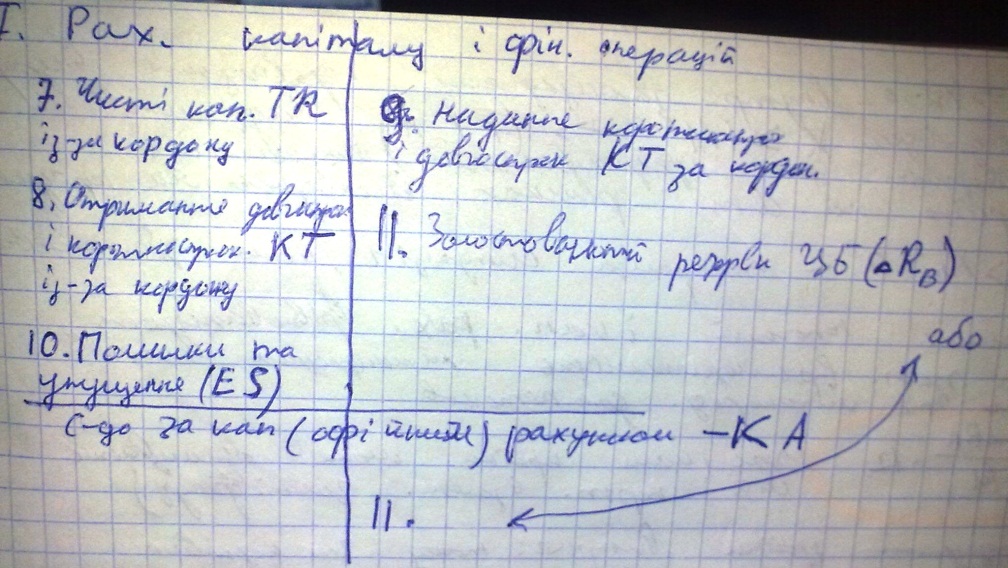 I. Рах. капіталу і фін. операцій
7. Чисті кап. TR
із-за кордону
8. Отримання довгостро
і короткострок. КТ
із-за кордону
10. Помилки та
упущення (ES)
9. Надання коротко
і довгострок КТ за кордон.
11. Золотовалютні резерви ЦБ (ΔR_B)
або
С-до за кап (офіційним) рахунком – КА
11.